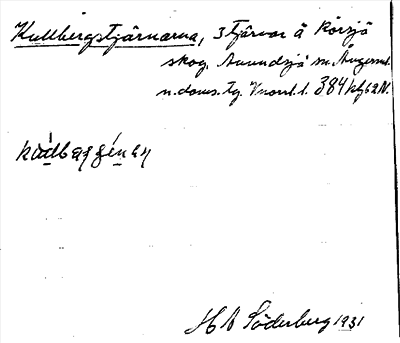 Kullbergstjärnarna, 3 tjärnar å Rörsjö
skog, Anundsjö sn. Ångerml.
n. doms. tg. Vnorrl. l. 384 kf 62 N.
H A Söderberg 1931